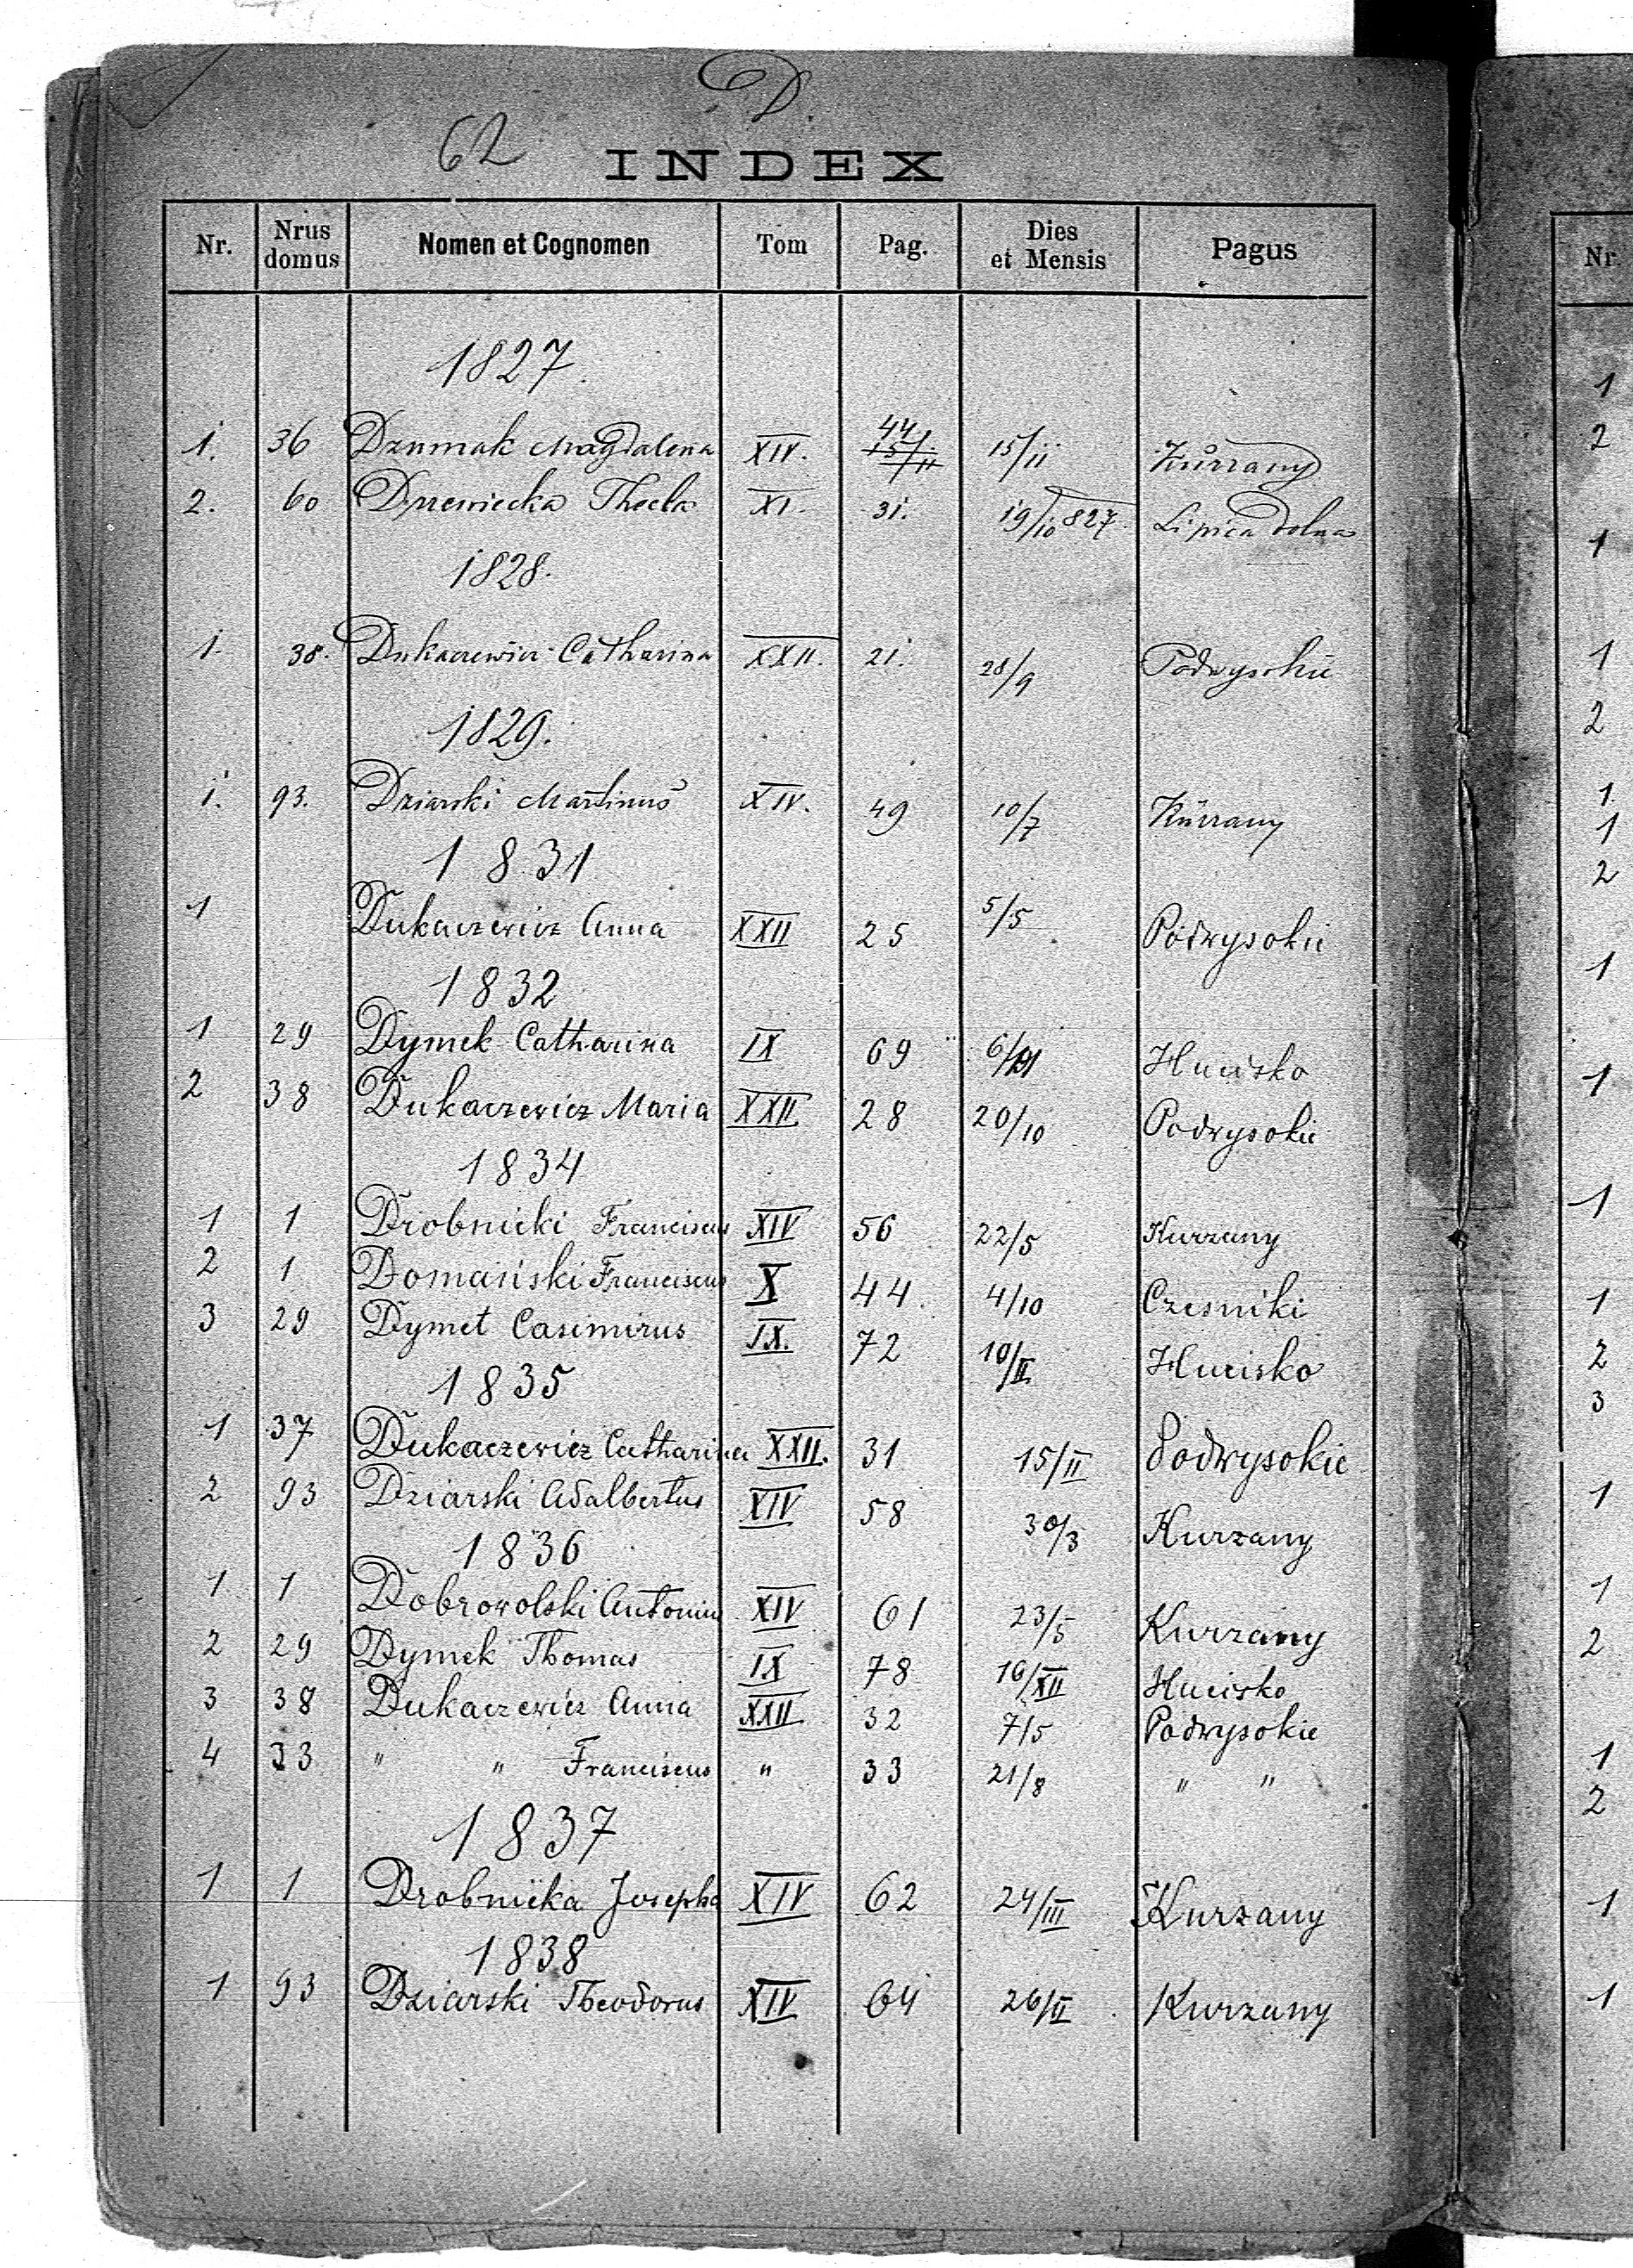 D.
62
INDEX
Nr. Nrus domus Nomen et Cognomen Tom Pag. Dies et Mensis Pagus
1827.
1. 36 Dzumak Magdalena XIV. 44 15/11 Kurzany
2. 60 Drzewiecka Thecla XI. 31. 19/10 827. Lipica dolna
1828.
1. 38. Dukaczewicz Catharina XXII. 21. 28/9 Podwysokie
1829.
1. 93. Dziarski Martinus XIV. 49 10/7 Kurzany
1831
1 Dukaczewicz Anna XXII 25 5/5 Podwysokie
1832
1 29 Dymek Catharina IX 69 Hucisko
2 38 Dukaczewicz Maria XXII 28 20/10 Podwysokie
1834
1 1 Drobnicki Franciscus XIV 56 22/5 Kurzany
2 1 Domański Franciscus X 44. 4/10 Czesniki
3 29 Dymet Casimirus IX. 72 10/II Hucisko
1835
1 37 Dukaczewicz Catharina XXII. 31 15/II Podwysokie
2 93 Dziarski Adalbertus XIV 58 30/3 Kurzany
1836
1 1 Dobrowolski Antonius XIV 61 23/5 Kurzany
2 29 Dymek Thomas IX 78 16/XII Hucisko
3 38 Dukaczewicz Anna XXII 32 7/5 Podwysokie
4 33 " " Franciscus " 33 21/8 " "
1837
1 1 Drobnicka Josepha XIV 62 24/III Kurzany
1838
1 93 Dziarski Theodorus XIV 64 26/II Kurzany
Nr
1
2
1
1
2
1
1
2
1
1
1
1
2
3
1
1
2
1
2
1
1